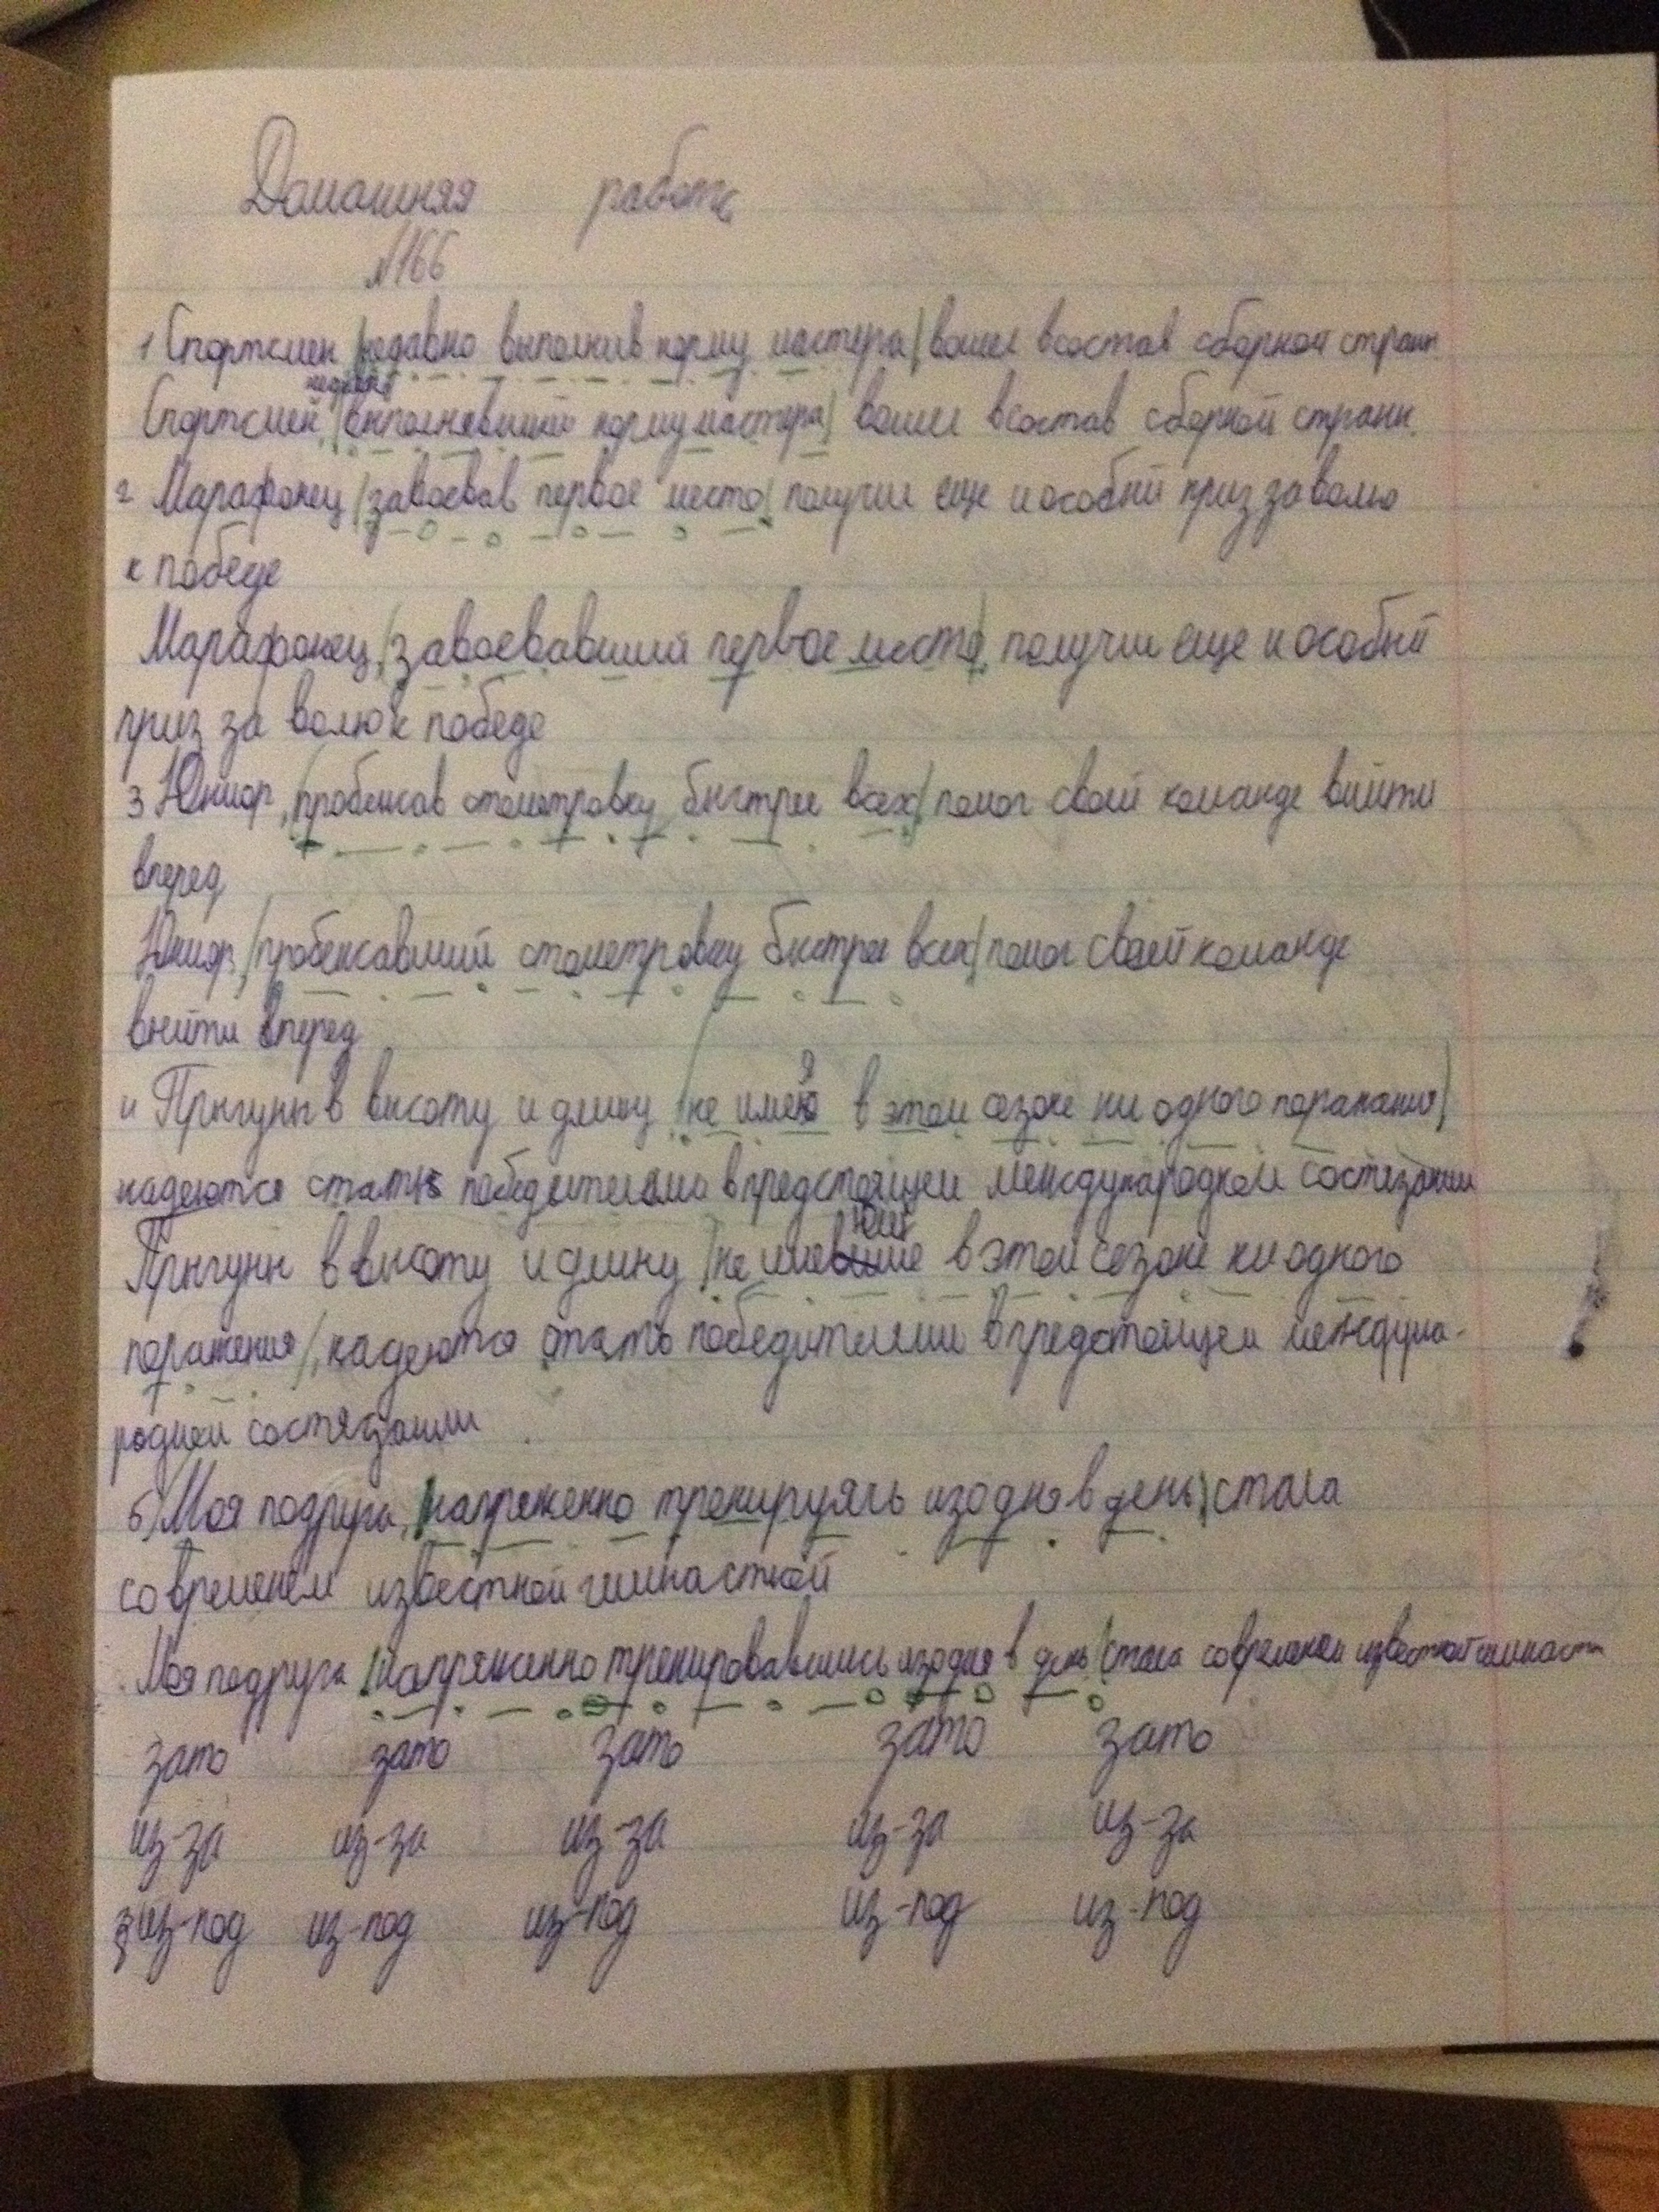 Домашняя работа
№166
1 Спортсмен, недавно выполнив норму мастера, вошел в состав сборной страны
недавно
Спортсмен, выполнявший норму мастера, вошел в состав сборной страны.
2 Марафонец, завоевав первое место, получил еще и особый приз за волю
к победе
Марафонец, завоевавший первое место, получил еще и особый
приз за волю к победе
3 Юниор, пробежав стометровку быстрее всех, помог своей команде выйти
вперед
Юниор, пробежавший стометровку быстрее всех, помог своей команде
выйти вперед
4 Прыгуны в высоту и длину, не имея в этом сезоне ни одного поражения,
надеются стать победителями в предстоящем международном состязании
Прыгуны в высоту и длину, не имеющие в этом сезоне ни одного
поражения, надеются стать победителями в предстоящем междуна-
родном состязании
5) Моя подруга, напряженно тренируясь изо дня в день, стала
со временем известной гимнасткой
Моя подруга, напряженно тренировавшись изо дня в день, стала со временем известной гимнастк
зато зато зато зато зато
из-за из-за из-за из-за из-за
из-под из-под из-под из-под из-под